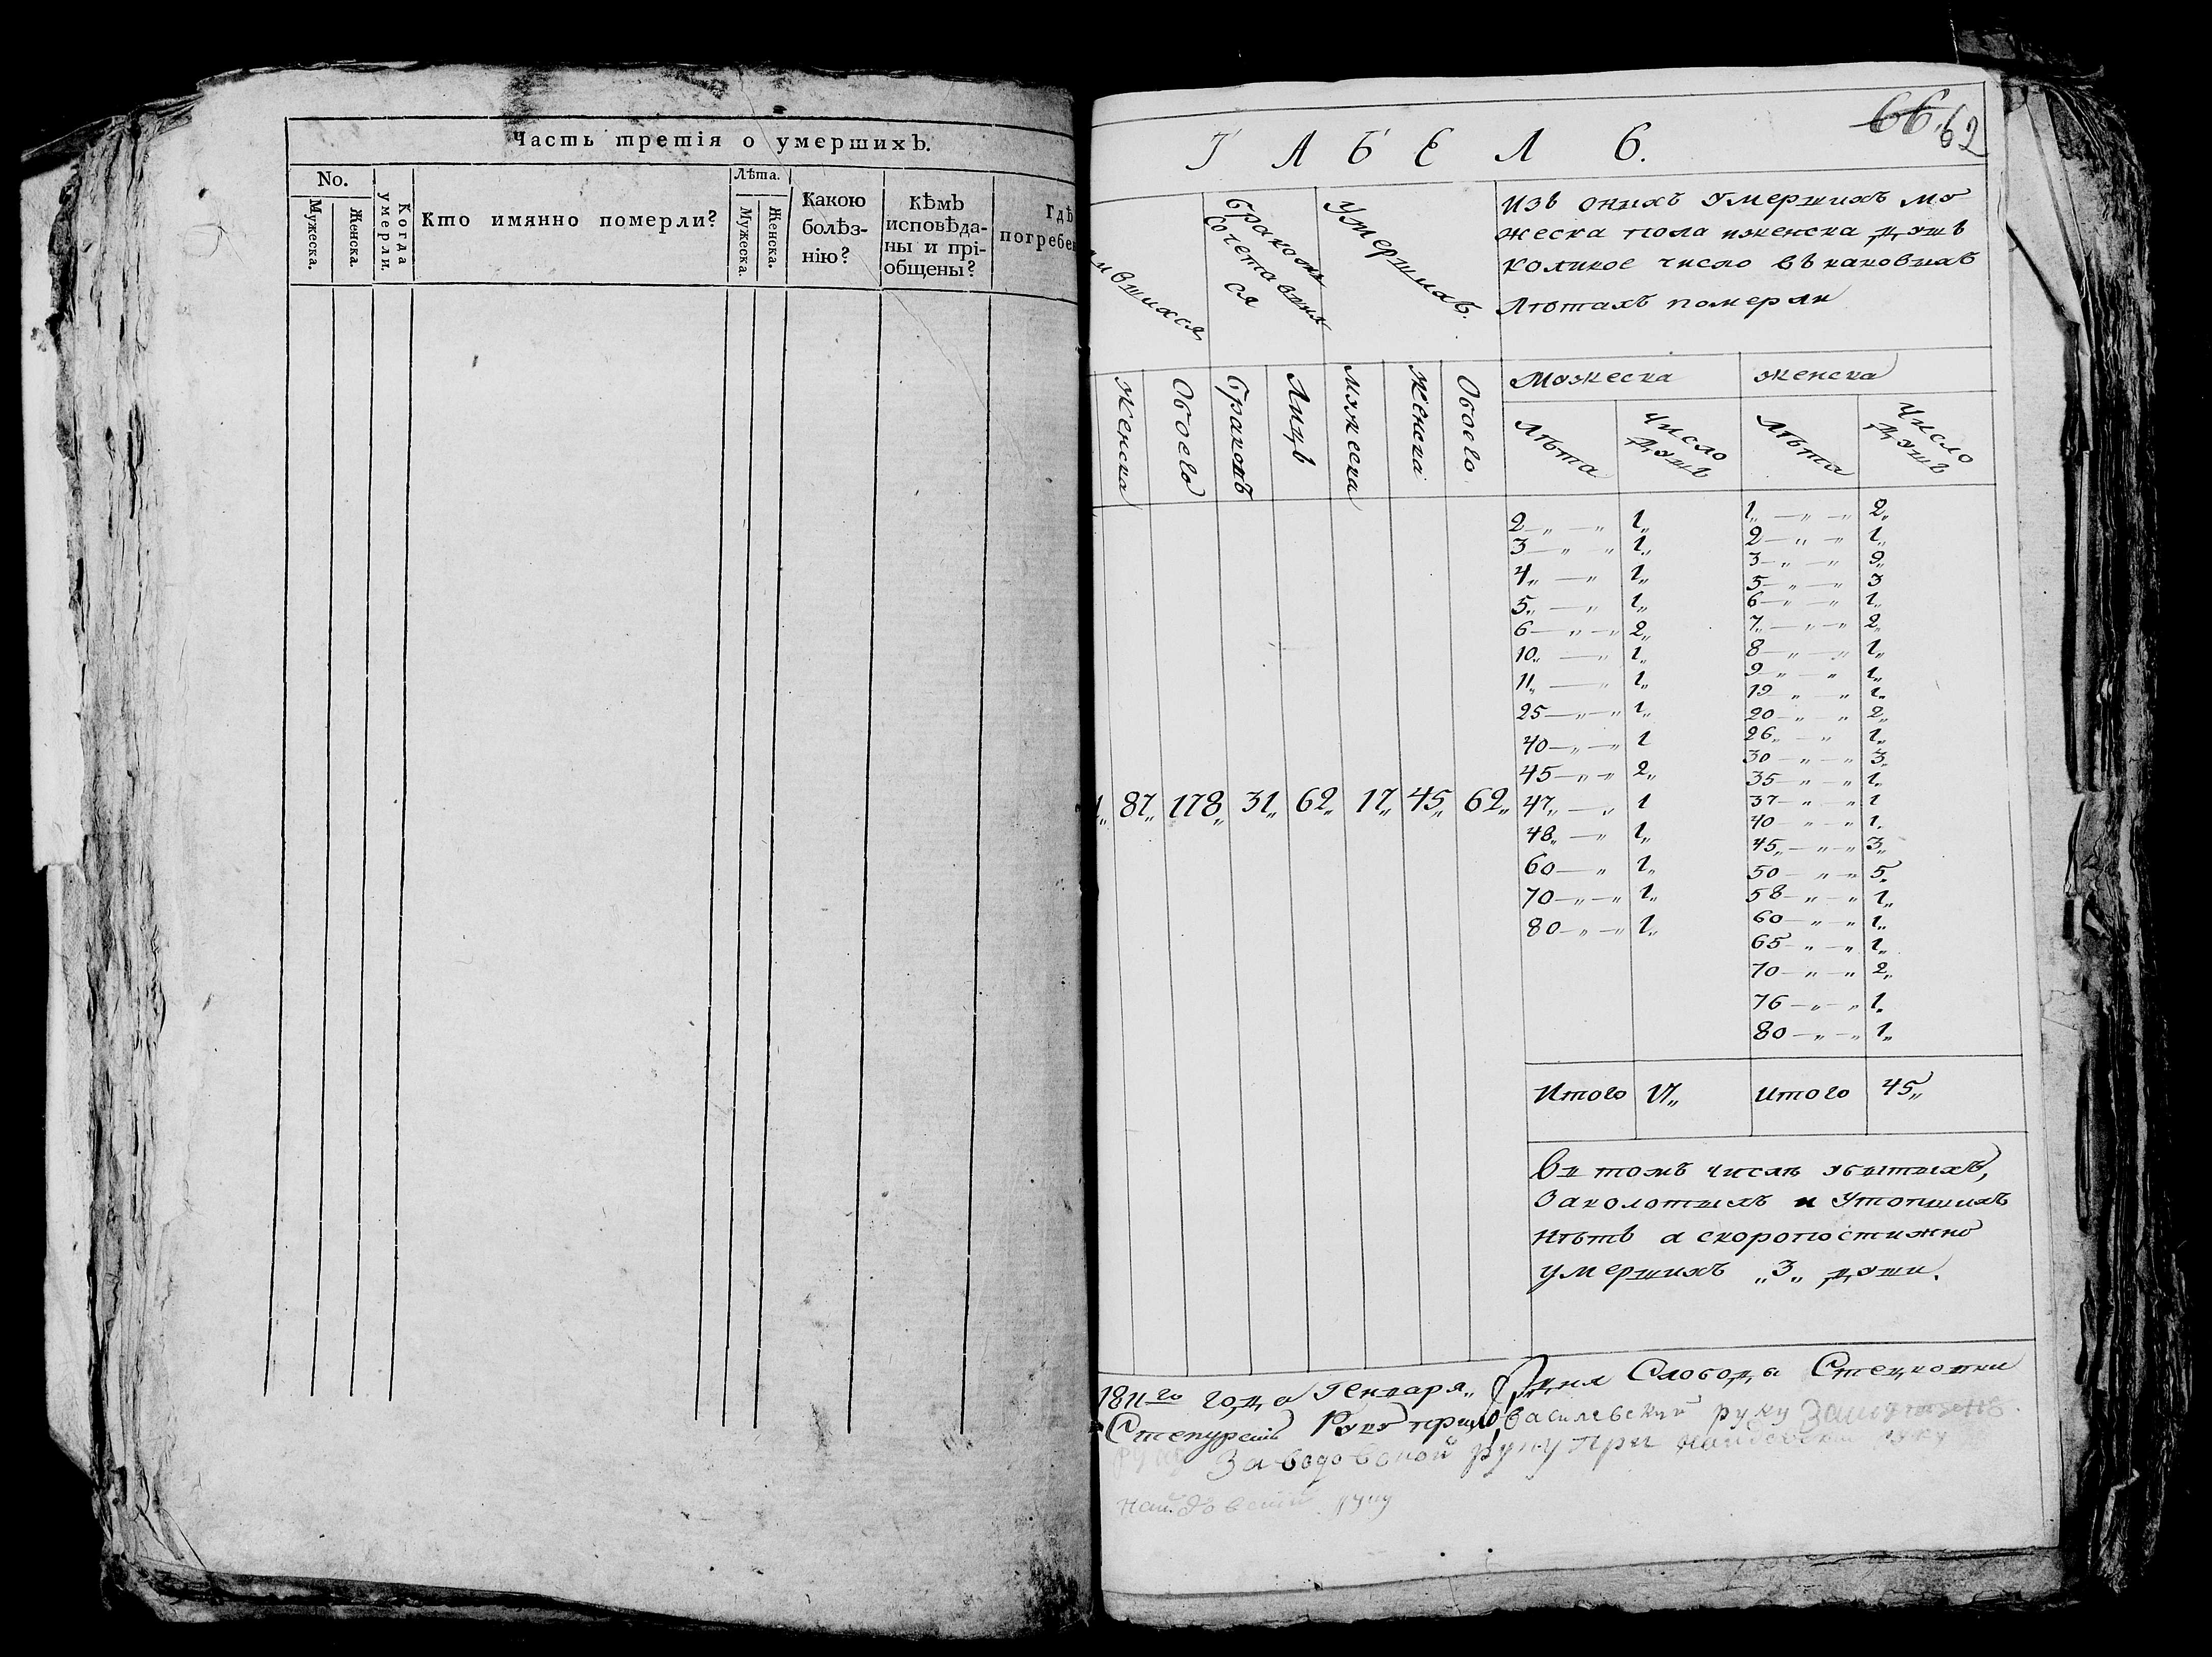 Часть третія о умершихъ.
No.
Мужеска.
Женска.
Когда умерли.
Кто имянно померли?
Лѣта.
Мужеска.
Женска.
Какою
болѣз-
нію?
Кѣмъ
исповѣда-
ны и прі-
общены?
Гдѣ
погребен
66. 62
Т А Б Е Л Ь.
ившихся
бракомъ
сочетавших
ся
умершихъ.
Изъ онихъ умершихъ му
жеска пола и женска душъ
коликое число въ каковихъ
Лѣтахъ померли
Женска
Обоего
Браковъ
Лицъ
Мужеска
Женска
Обоего
Мужеска
женска
Лѣта
Число
душъ
Лѣта
Число
душъ
2 — „ — „ 1„
3 — „ „ 1„
4„ — „ 1„
5„ — „ 1„
6 — „ — „ 2„
10„ — „ 1„
11„ — „ 1„
25 — „ — „ 1„
40 — „ — „ 1
45 — „ — „ 2„
47„ — „ 1
48„ — „ 1„
60 — „ 1„
70 — „ — „ 1„
80 — „ — „ 1„
1„ — „ — „ 2„
2 — „ — „ 1„
3 — „ — „ 2„
5 — „ — „ 3
6 — „ — „ 1„
7„ — „ — „ 2„
8 — „ — „ 1„
9 — „ — „ 1„
19 — „ — „ 1„
20 — „ — „ 2„
26„ — „ 1„
30 — „ — „ 3„
35 — „ — „ 1„
37 — „ — „ 1
40 — „ — „ 1„
45„ — „ — „ 3„
50 — „ — „ 5„
58 — „ — „ 1„
60 — „ — „ 1„
65 — „ — „ 1„
70 — „ — „ 2„
76 — „ — „ 1„
80 — „ — „ 1„
1„ 87„ 178„ 31„ 62„ 17„ 45„ 62„
Итого 17„ Итого 45„
Въ томъ числѣ убытыхъ,
Заколотыхъ и утопшихъ
нѣтъ а скоропостижно
умершихъ „3„ души.
1811го года Генваря„ дня Слободы Стецковки
Василевский руку
Заводовской руку При
руку